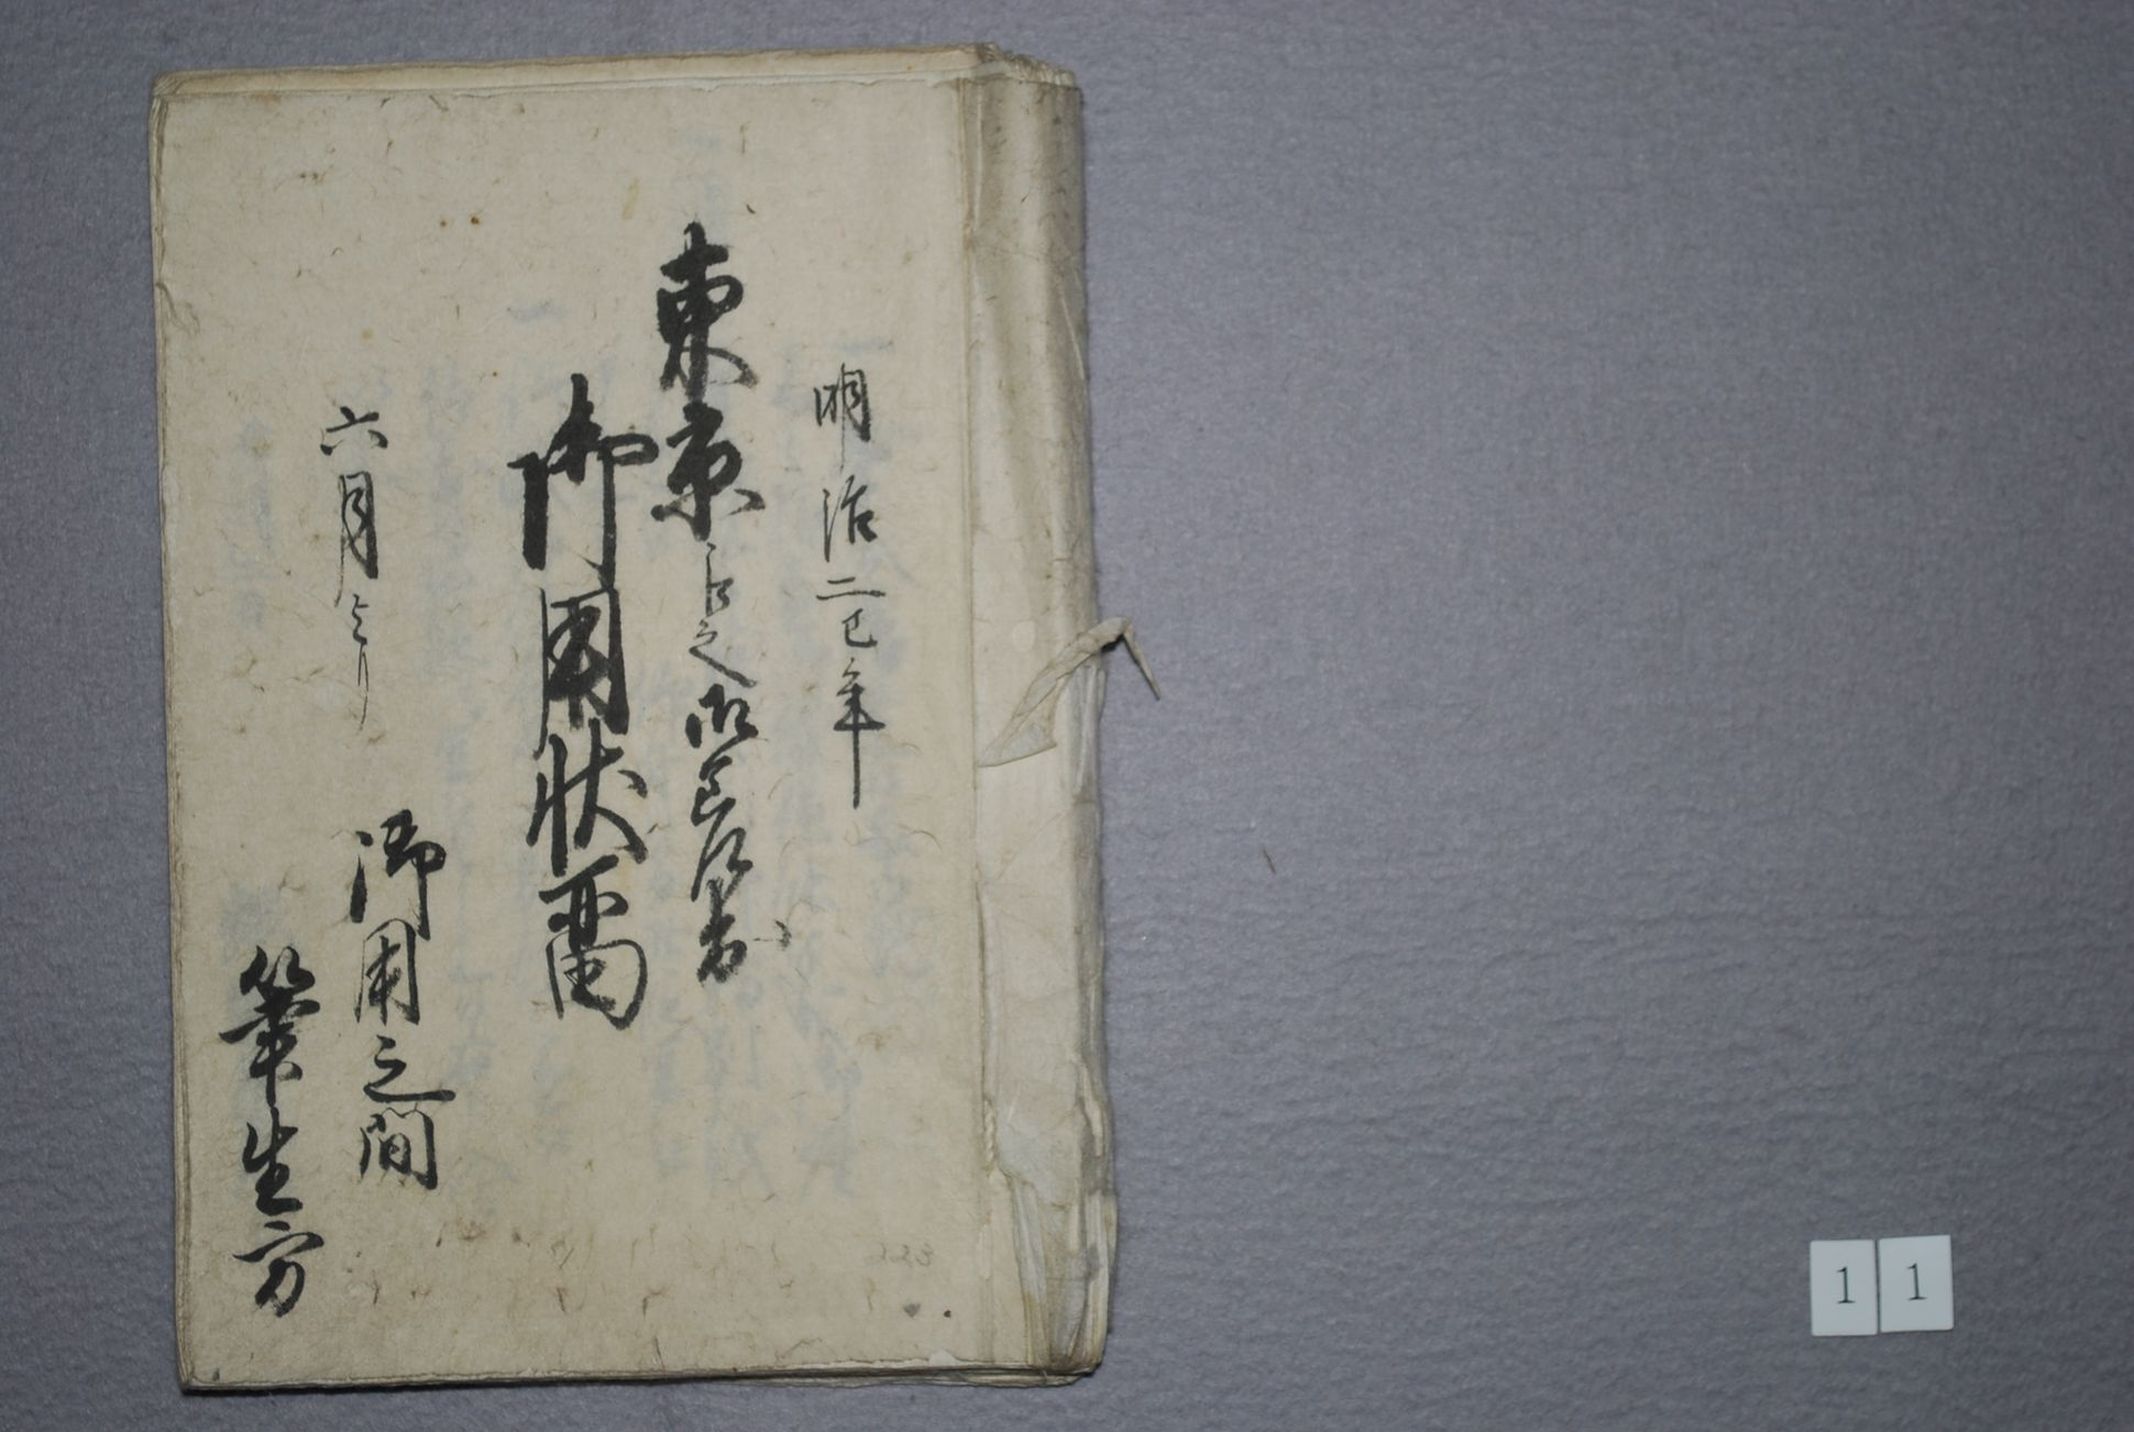 明治二巳年
東京ゟ之御差紙写
御用状留
六月ゟ
御用之間
筆生方
1 1